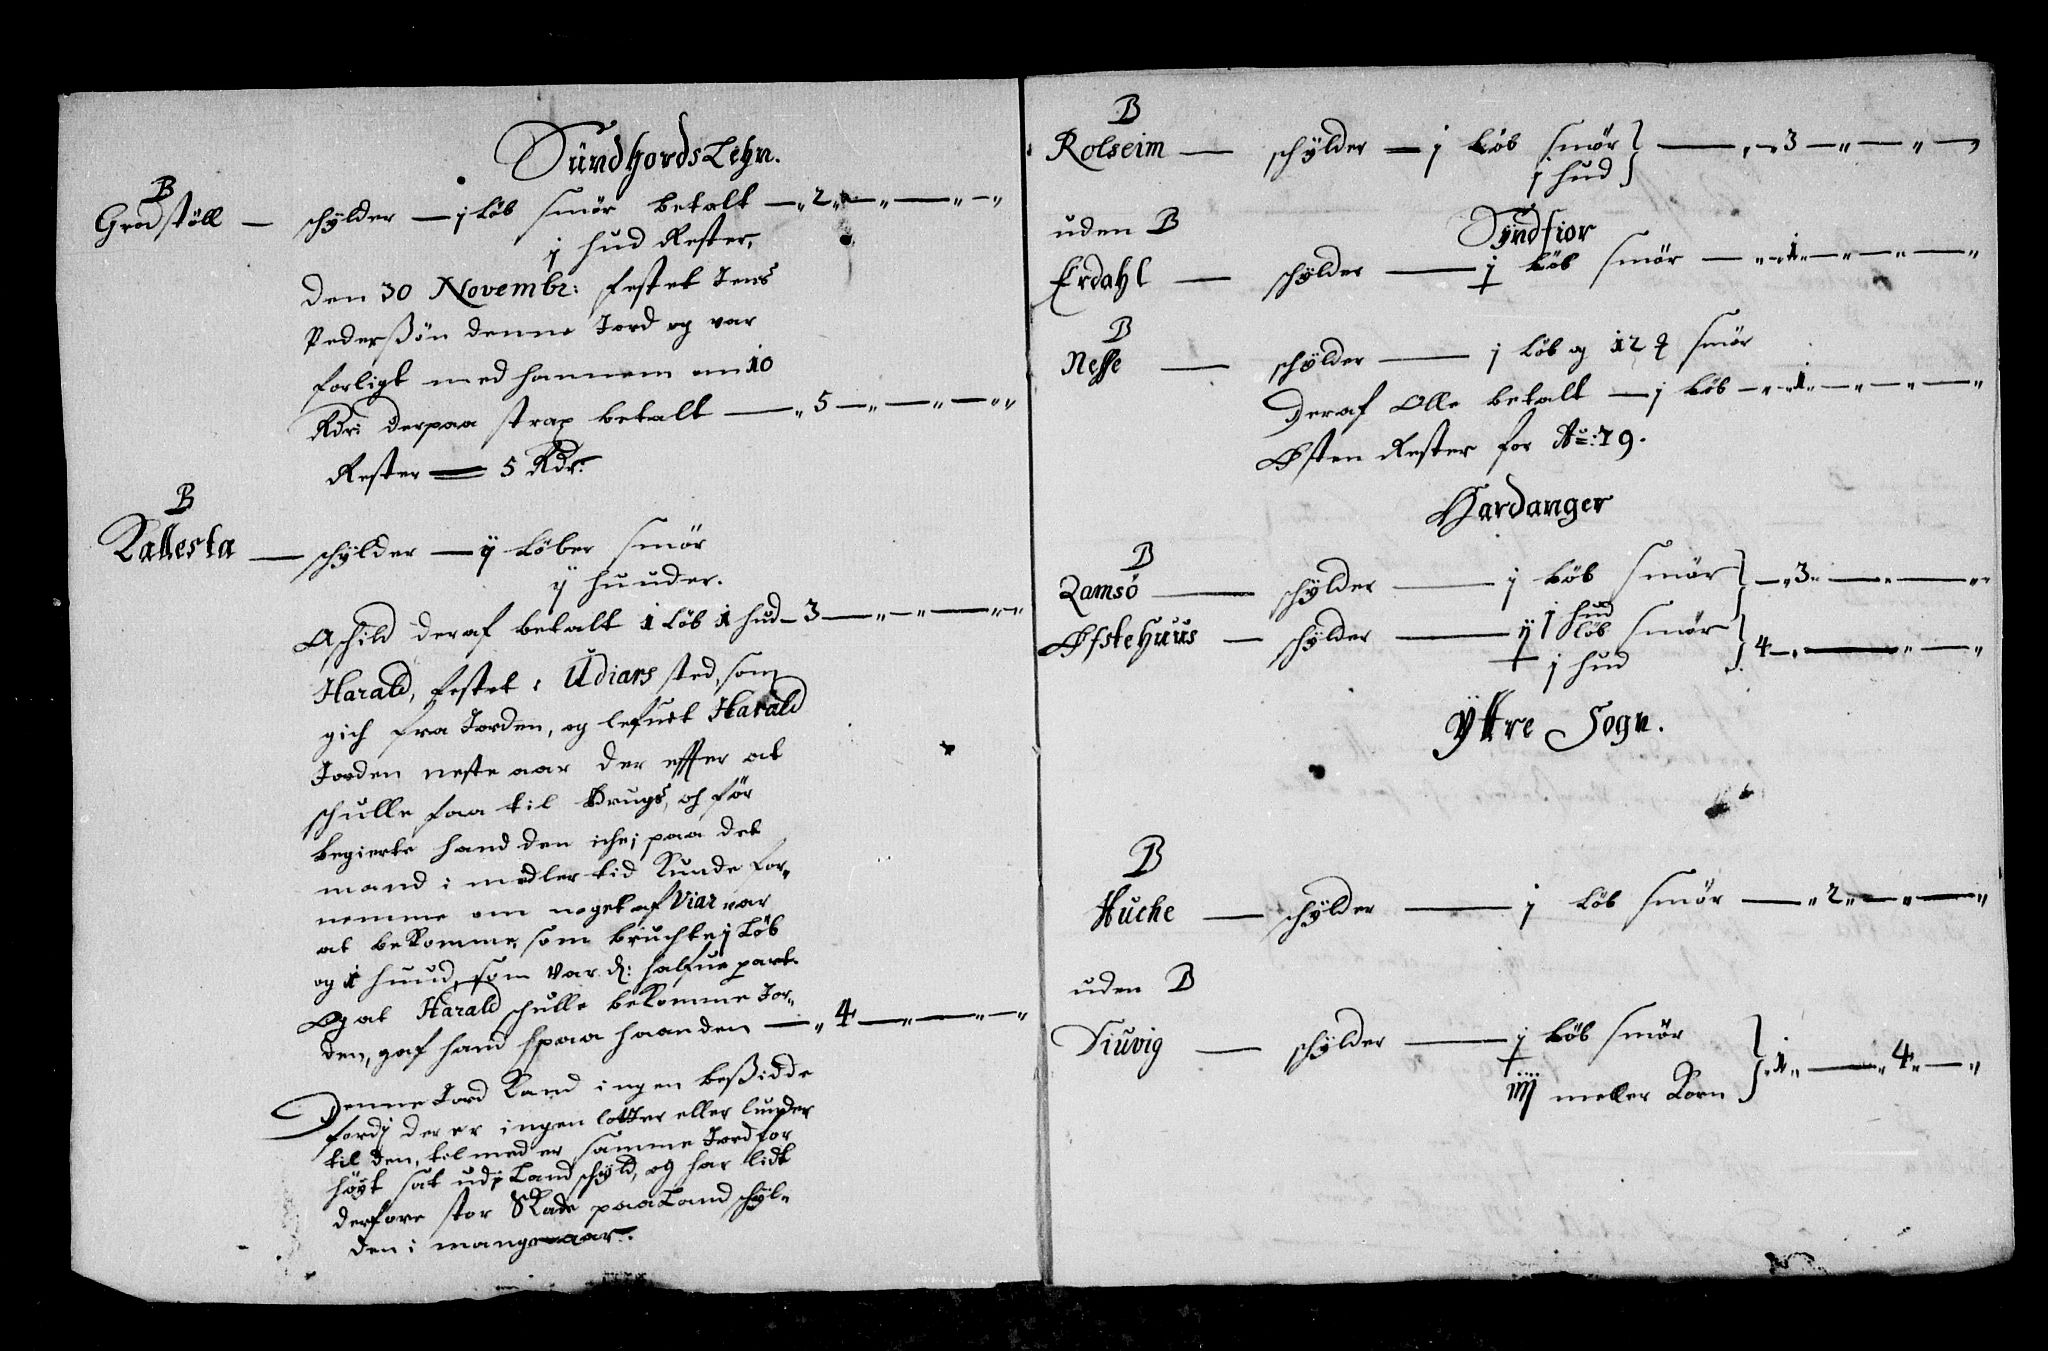 Sündhords Lehn.
B
Grodstöll — schÿlder — j Löb smör betalt — „ 2 „ — „ — „ — „
j hud Rester,
Den 30 Novembr: festet Jens
Pederßön denne Jord og var
forligt med hannem om 10
Rdr: derpaa strax betalt — „ 5 — „ — „ — „
Rester — 5 Rdr:
B
Kallesta — schÿlder — ij Löber smör
ij huuder.
Aschild deraf betalt 1 Löb 1 hud – 3 — „ — „ — „
Harald, festet i Udiars sted, som
gich fra Jorden, og lefuert Harald
Jorden neste aar der effter at
schulle faa til Brugs, och før
begierte hand den iche, paa det
mand i medler tid Kunde for„
nemme om noget af Viar var
at bekomme, som bruchte j Löb
og 1 huud, som var d: halfue part.
Og at Harald schulle bekomme Jor„
den, gaf hand paa haanden — „ 4 — „ — „ — „
Denne Jord Kand ingen beßidde
fordj der er ingen lotter eller lunder
til den, til med er samme Jord for
höyt sat udj Landschÿld, og har lidt
derfore stor Skade paa Landschÿl„
den i mange aar.
B
Rolseim — schÿlder — j Löb smör } — „ — 3 — „ — „ —
j hud
Sÿndfior
uden B
Erdahl — schÿlder — j Löb smör — „ — 1 „ — „ — „
B
Nesse — schÿlder — j Löb og 12 ₰ smör
Deraf Olle betalt — j Löb — „ — 1 „ — „ — „ — „
Østen Rester for Ao: 79.
Hardanger
B
Samsö — schÿlder — j Löb smör } — „ 3 „ — „ — „
j hud
Øfstehuus — schÿlder — ij löb smör } 4 — „ — „ — „
j hud
Ÿttre Sogn.
B
Huche — schÿlder — j Löb smör — „ 2 „ — „ — „
uden B
Diuvig — schÿlder — j Löb smör } „ 1 „ — „ 4 „ — „
iiij meller Korn